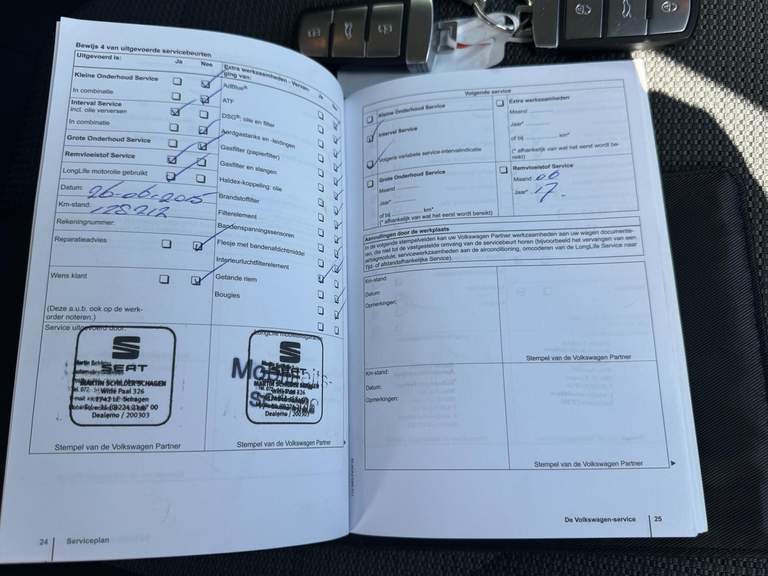 Bewijs 4 van uitgevoerde servicebeurten
Uitgevoerd is:
Ja Nee
Kleine Onderhoud Service
In combinatie
Interval Service
incl. olie verversen
In combinatie
Grote Onderhoud Service
Remvloeistof Service
LongLife motorolie gebruikt
Datum:
Km-stand: 128212
Rekeningnummer:
Reparatieadvies
Wens klant
(Deze a.u.b. ook op de werk-
order noteren.)
Service uitgevoerd door:
Extra werkzaamheden - Vervan-
ging van:
Ja
AdBlue®
ATF
DSG®: olie en filter
Aardgastanks en -leidingen
Gasfilter (papierfilter)
Gasfilter en slangen
Haldex-koppeling: olie
Brandstoffilter
Filterelement
Bandenspanningssensoren
Flesje met bandenafdichtmiddel
Interieurluchtfilterelement
Getande riem
Bougies
SEAT
MARTIN SCHILDER SCHAGEN
Witte Paal 326
1742 LE Schagen
Dealerno / 200303
SEAT
MARTIN SCHILDER SCHAGEN
Witte Paal 326
Dealerno / 200303
Stempel van de Volkswagen Partner
Stempel van de Volkswagen Partner
24 Serviceplan
Volgende service
Kleine Onderhoud Service
Interval Service
Volgens variabele service-intervalindicatie
Grote Onderhoud Service
Maand
Jaar*
of bij km*
(* afhankelijk van wat het eerst wordt bereikt)
Extra werkzaamheden
Maand
Jaar*
of bij km*
(* afhankelijk van wat het eerst wordt be-
reikt)
Remvloeistof Service
Maand 06
Jaar* 17
Aanvullingen door de werkplaats
In de volgende stempelvelden kan uw Volkswagen Partner werkzaamheden aan uw wagen documente-
ren, die niet tot de vastgestelde omvang van de servicebeurt horen (bijvoorbeeld het vervangen van een
airbagmodule, servicewerkzaamheden aan de airconditioning, omcoderen van de LongLife Service naar
Tijd- of afstandafhankelijke Service).
Km-stand:
Datum:
Opmerkingen:
Stempel van de Volkswagen Partner
Km-stand:
Datum:
Opmerkingen:
Stempel van de Volkswagen Partner
De Volkswagen-service 25